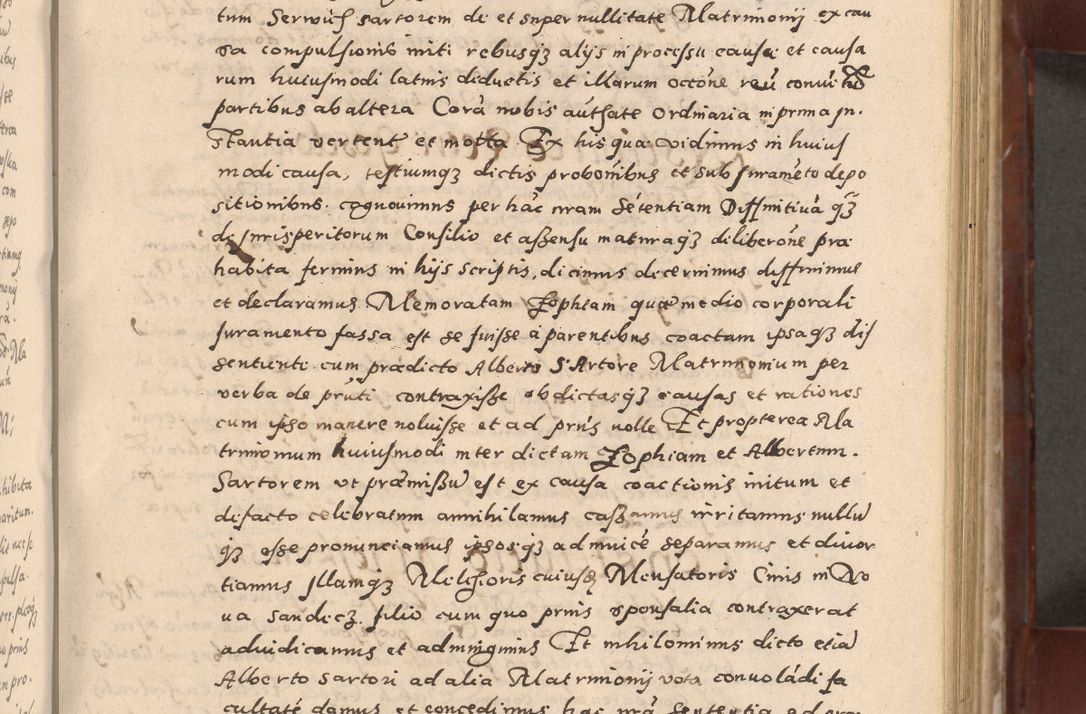 tum Serwuch sartorem de et super nullitate Matrimonij ex cau
sa compulsionis initi rebusqȝ alijs in processu causæ et causa
rum huiusmodi latius deductis et illarum occōne
partibus ab altera Corā nobis authate Ordinaria in prima In.
stantia vertent et mota Ex his quæ vidimus in huius
modi causa, testiumqȝ dictis probonibus et sub Iuramēto depo
sitionibus. cognouimus per hāc nram Sētentiam Diffinitiuā qȝ
de Iurisperitorum Consilio et assensu maturaqȝ deliberone præ
habita ferimus in hijs scriptis, dicimus decernimus diffinimus
et declaramus. Memoratam Zophiam quæ medio corporali
Iuramento fassa est se fuisse à parentibus coactam ipsaqȝ dis
sentienti cum prædicto Alberto Sartore Matrimonium per
verba de pruti contraxisse ob dictasqȝ causas et rationes
cum ipso manere noluisse et ad prns nolle Et propterea Ma
trimonium huiusmodi inter dictam Zophiam et Albertum.
Sartorem vt præmissū est ex causa coactionis initum et
defacto celebratum annihilamus cassamus irritamus nullū
qȝ esse pronunciamus ipsosqȝ ad inuicē separamus et diuor
tiamus Illamqȝ Melchioris cuiusdȝ Mensatoris Ciuis in No
ua Sandecȝ filio cum quo prius sponsalia contraxerat
adiudicamus et adiungimus Et nihilominus dicto etiā
Alberto Sartori ad alia Matrimonij vota conuoladi fa
cultatē damus et concedimus hac nrā Sententia